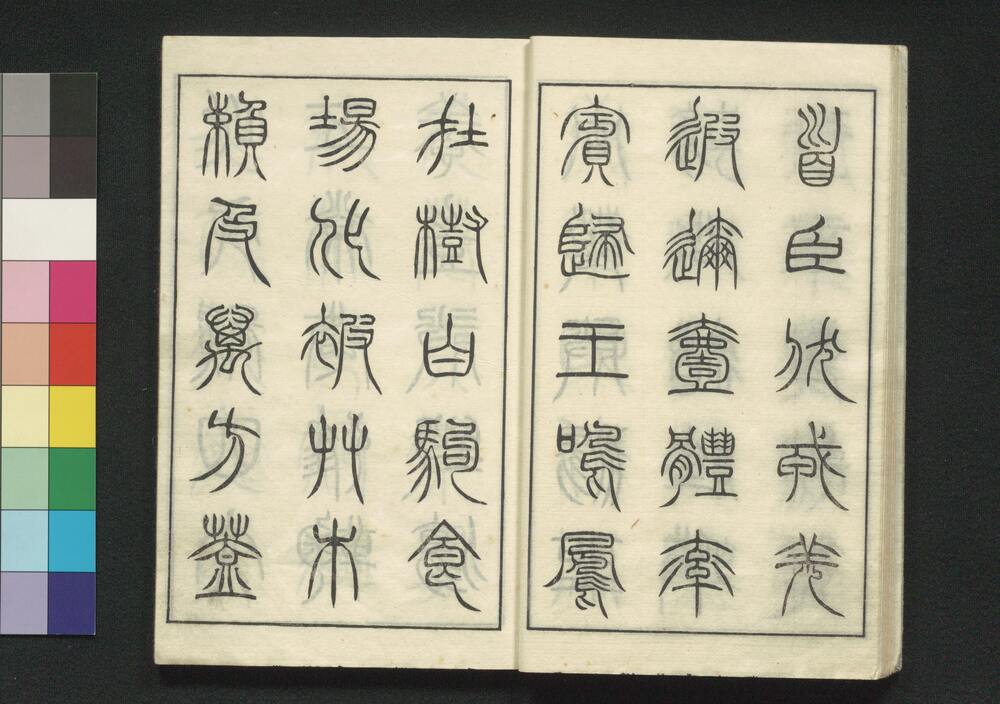 首臣伏戎羌
遐邇壹體率
賓歸王鳴鳳
在樹白駒食
場化被草木
賴及萬方蓋